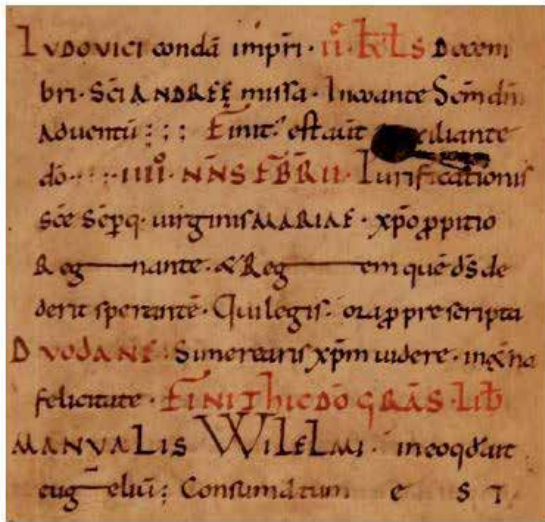 LVDOVICI condā imp̄ri · II° · kƚDS Decem
bri · S̄CI ANDREĘ missa · Incoante S̄cm dn̄i
Aduentū : : : Finit᷒ est aut̄ xiliante
dō · · · · IIII° · NN̄S FB̄RII · Purificationis
Sc̄e Semꝑq · uirginis MARIAE · xp̄o ꝓpitio
Reg nante · & Reg em quē d̄s de
derit sperantē · Qui legis · ora ꝓ prescripta
DVODANE · Si merearis xp̄m uidere · in ęt̄na
felicitate · FINIT hIC DŌ GRĀS · LIB̄
MANVALIS WILELMI · in eo qd̄ ait
eug eliū : Consumatum e s t